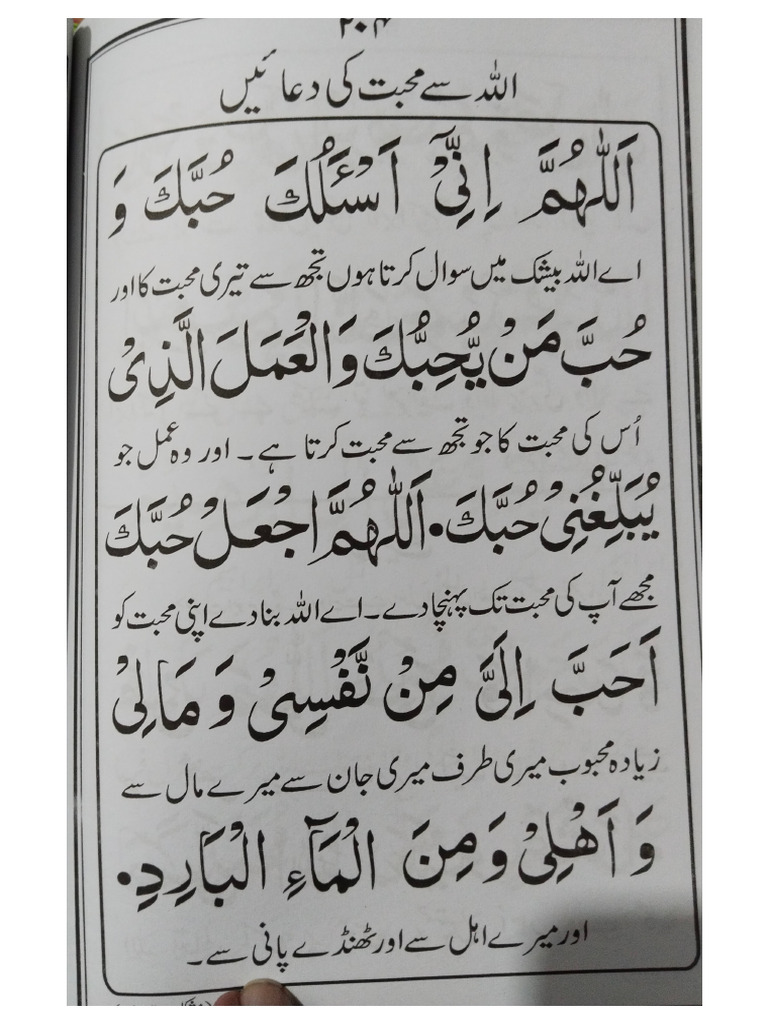 ۲۰۴
اللہ سے محبت کی دعائیں
اَللّٰهُمَّ اِنِّیْٓ اَسْئَلُكَ حُبَّكَ وَ
اے اللہ بیشک میں سوال کرتا ہوں تجھ سے تیری محبت کا اور
حُبَّ مَنْ یُّحِبُّكَ وَالْعَمَلَ الَّذِیْ
اُس کی محبت کا جو تجھ سے محبت کرتا ہے۔ اور وہ عمل جو
یُبَلِّغُنِیْ حُبَّكَ۔ اَللّٰهُمَّ اجْعَلْ حُبَّكَ
مجھے آپ کی محبت تک پہنچا دے۔ اے اللہ بنا دے اپنی محبت کو
اَحَبَّ اِلَیَّ مِنْ نَّفْسِیْ وَ مَالِیْ
زیادہ محبوب میری طرف میری جان سے میرے مال سے
وَ اَهْلِیْ وَ مِنَ الْمَآءِ الْبَارِدِ۔
اور میرے اہل سے اور ٹھنڈے پانی سے۔